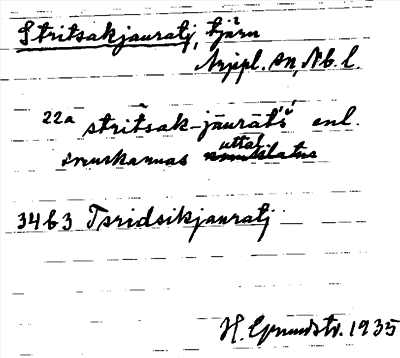 Stritsakjauratj, tjärn
Arjepl. sn, Nb. l.
22a stritsak-jāurātš enl.
svenskarnas uttal
3463 Tsridsikjauratj
H. Grundstr. 1935